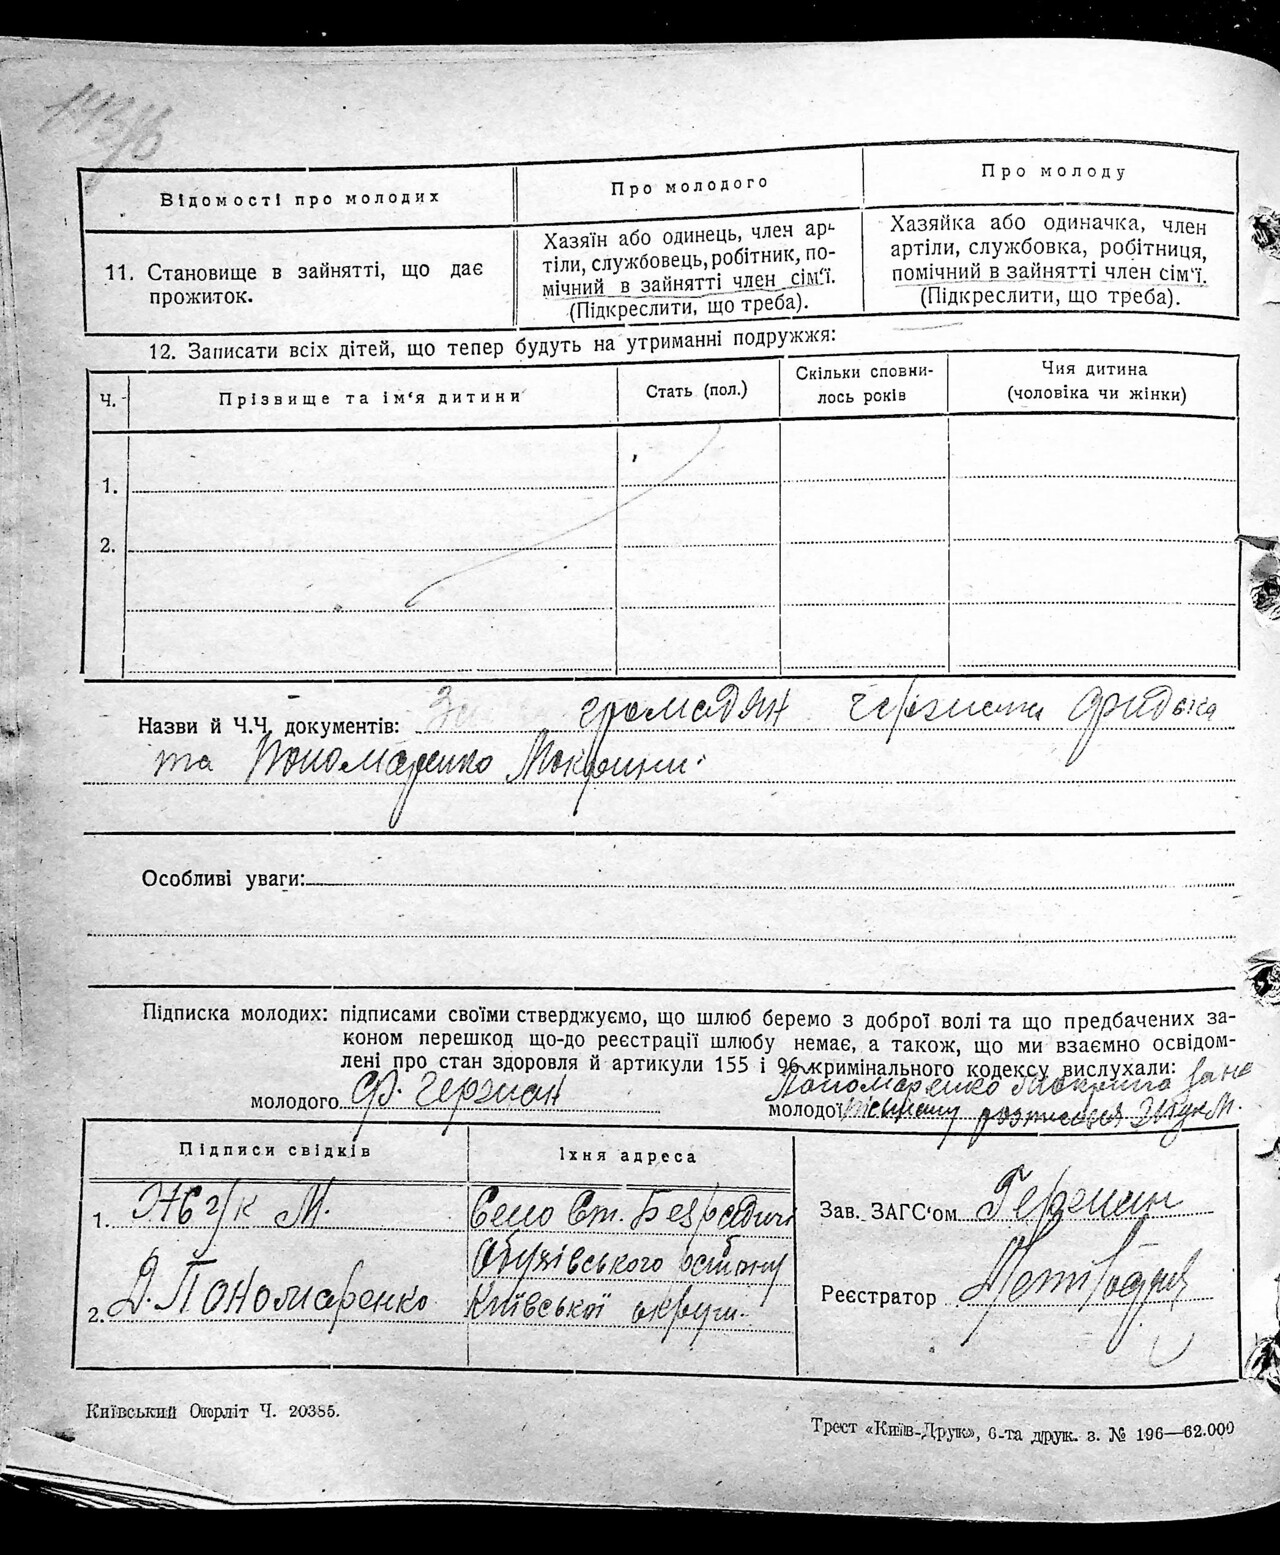 Відомості про молодих
Про молодого
Про молоду
11. Становище в зайнятті, що дає
прожиток.
Хазяїн або одинець, член ар-
тіли, службовець, робітник, по-
мічний в зайнятті член сім'ї.
(Підкреслити, що треба).
Хазяйка або одиначка, член
артіли, службовка, робітниця,
помічний в зайнятті член сім'ї.
(Підкреслити, що треба).
12. Записати всіх дітей, що тепер будуть на утриманні подружжя:
Ч.
Прізвище та ім'я дитини
Стать (пол.)
Скільки сповни-
лось років
Чия дитина
(чоловіка чи жінки)
1.
2.
Назви й Ч.Ч. документів: громадян Германа
та Пономаренко Мокрини
Особливі уваги:
Підписка молодих: підписами своїми стверджуємо, що шлюб беремо з доброї волі та що предбачених за-
коном перешкод що-до реєстрації шлюбу немає, а також, що ми взаємно освідом-
лені про стан здоровля й артикули 155 і 96 кримінального кодексу вислухали:
молодого Ф. Герман
Пономаренко Мокрина за не
молодої письмену розписався М.
Підписи свідків
Їхня адреса
1. М.
Село Ст. Безрадичі
Обухівського району
2. Д. Пономаренко
Київської округи.
Зав. ЗАГС'ом Герман
Реєстратор
Київський Окрліт Ч. 20385.
Трест «Київ-Друк», 6-та друк. з. № 196—62.000